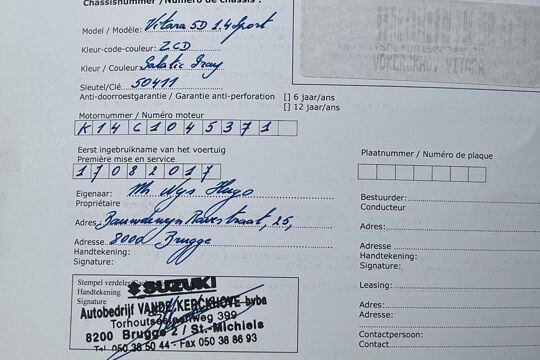 Chassisnummer / Numéro de chassis :
Model / Modèle: Vitara 5D 1.4 Sport
Kleur-code-couleur: ZCD
Kleur / Couleur: Galatic Gray
Sleutel/Clé: 50411
Anti-doorroestgarantie / Garantie anti-perforation [] 6 jaar/ans
[] 12 jaar/ans
Motornummer / Numéro moteur
K14C1045371
Eerst ingebruikname van het voertuig
Première mise en service
17082017
Eigenaar: Mr Nys Hugo
Propriétaire
Adres: straat, 25,
Adresse 8000 Brugge
Handtekening:
Signature:
Stempel verdeler
Handtekening
Signature
SUZUKI
Autobedrijf VANDE KERCKHOVE bvba
Torhoutsesteenweg 399
8200 Brugge 2 / St.-Michiels
Tel. 050 38 50 44 - Fax 050 38 86 93
Plaatnummer / Numéro de plaque
Bestuurder:
Conducteur
Adres:
Adresse
Handtekening:
Signature:
Leasing:
Adres:
Adresse:
Contactpersoon:
Contact